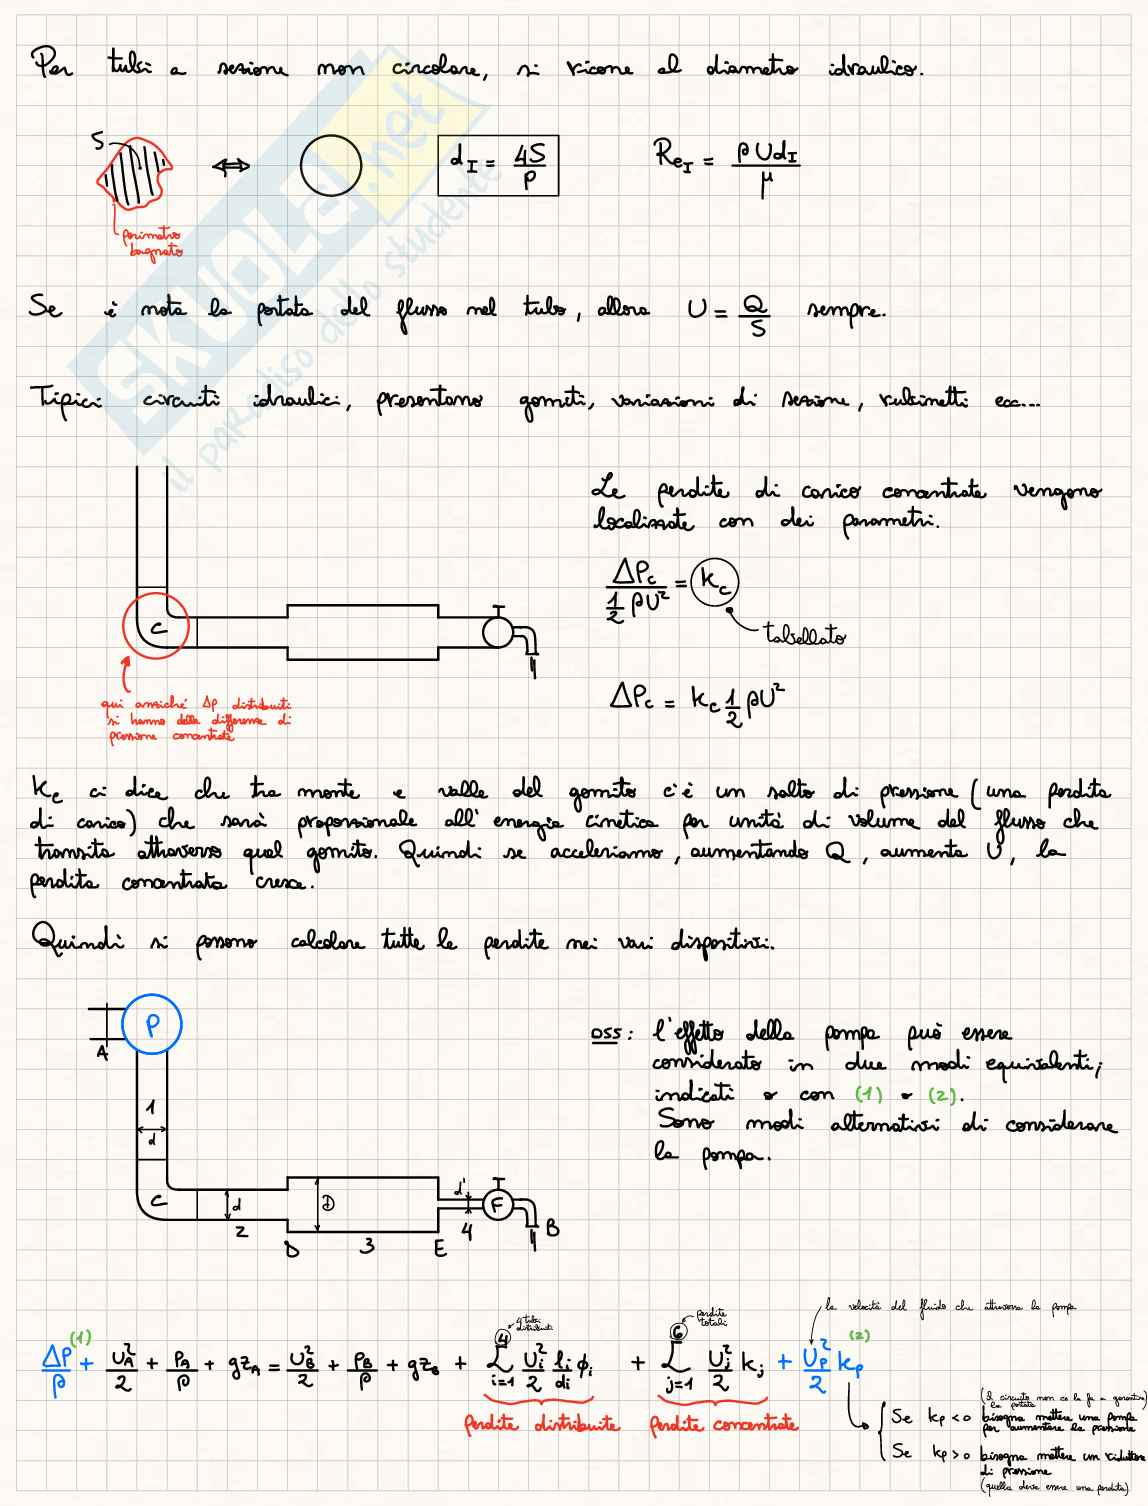 Per tubi a sezione non circolare, si ricorre al diametro idraulico.
S
perimetro
bagnato
d_I = 4S/P
Re_I = ρ U d_I/μ
SKUOLA.net
il paradiso dello studente
Se è nota la portata del flusso nel tubo, allora U = Q/S sempre.
Tipici circuiti idraulici, presentano gomiti, variazioni di sezione, rubinetti ecc...
C
qui anziché Δp distribuiti
si hanno delle differenze di
pressione concentrate
Le perdite di carico concentrate vengono
localizzate con dei parametri.
ΔP_c / (1/2 ρU²) = k_c
tabellato
ΔP_c = k_c 1/2 ρU²
k_c ci dice che tra monte e valle del gomito c'è un salto di pressione (una perdita
di carico) che sarà proporzionale all'energia cinetica per unità di volume del flusso che
transita attraverso quel gomito. Quindi se acceleriamo, aumentando Q, aumenta U, la
perdita concentrata cresce.
Quindi si possono calcolare tutte le perdite nei vari dispositivi.
P
A
1
d
C
d
2
D
D
3
E
d'
4
F
B
oss: l'effetto della pompa può essere
considerato in due modi equivalenti;
indicati con (1) e (2).
Sono modi alternativi di considerare
la pompa.
la velocità del fluido che attraversa la pompa
4 tubi
distribuite
perdite
totali
ΔP/ρ (1) + U_A²/2 + P_A/ρ + gz_A = U_B²/2 + P_B/ρ + gz_B + Σ_{i=1}^{4} U_i²/2 l_i/d_i ϕ_i + Σ_{j=1}^{6} U_j²/2 k_j + U_P²/2 k_P (2)
perdite distribuite
perdite concentrate
(Il circuito non ce la fa a garantire
la portata)
Se k_P < 0 bisogna mettere una pompa
per aumentare la pressione
Se k_P > 0 bisogna mettere un riduttore
di pressione
(quella deve essere una perdita)